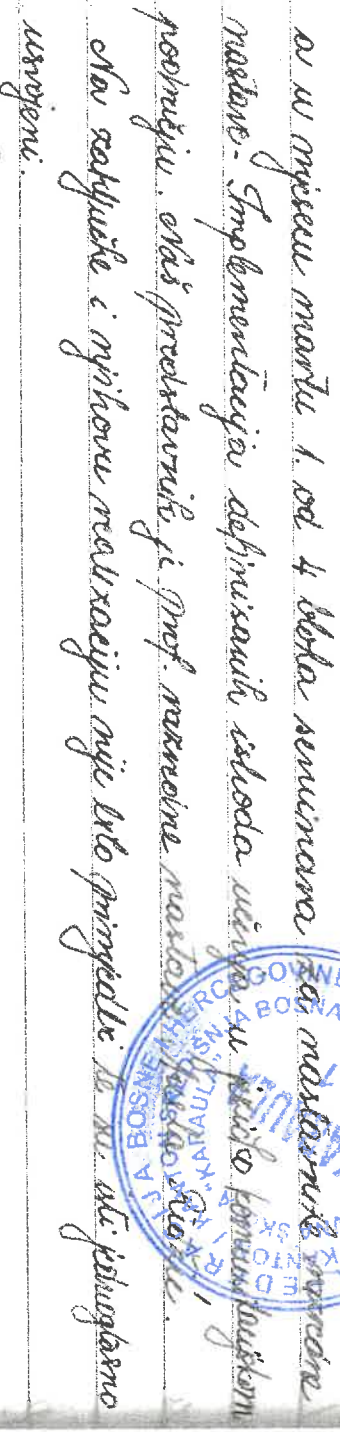 a u mjesecu martu 1. od 4 bloka seminara za nastavnike razredne
nastave - Implementacija definisanih ishoda učenja u jezičko komunikacijskom
području. Naš predstavnik je prof. razredne nastave
Na zaključke i njihovu realizaciju nije bilo primjedbi te su isti jednoglasno
usvojeni.
BOSNE I HERCEGOVINE
KARAULA